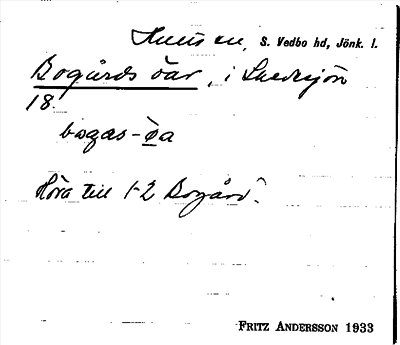 Hults en, S. Vedbo hd, Jönk. l.
Bogårds öar, i Skedesjön
18.
bogas-öa
Höra till 1-2 Bogård.
FRITZ ANDERSSON 1933